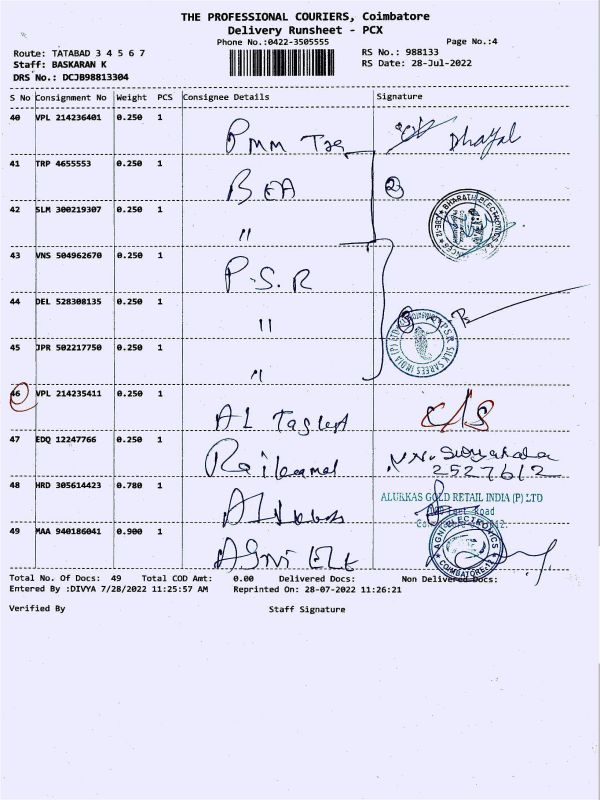 THE PROFESSIONAL COURIERS, Coimbatore
Delivery Runsheet - PCX
Phone No.:0422-3505555
Page No.:4
Route: TATABAD 3 4 5 6 7
RS No.: 988133
Staff: BASKARAN K
RS Date: 28-Jul-2022
DRS No.: DCJB98813304
S No Consignment No Weight PCS Consignee Details Signature
40 VPL 214236401 0.250 1
Dhayal
41 TRP 4655553 0.250 1
BEA
2
42 SLM 300219307 0.250 1
"
BHARATH ELECTRONICS
43 VNS 504962670 0.250 1
P.S.R
44 DEL 528308135 0.250 1
"
P.S.R. SILK SAREES INDIA (P) LTD
45 JPR 502217750 0.250 1
"
46 VPL 214235411 0.250 1
AL
C/S
47 EDQ 12247766 0.250 1
2527612
48 HRD 305614423 0.780 1
ALURKAS GOLD RETAIL INDIA (P) LTD
Road
49 MAA 940186041 0.900 1
AGNI ELE
AGNI ELECTRONICS
COIMBATORE-12
Total No. Of Docs: 49 Total COD Amt: 0.00 Delivered Docs: Non Delivered Docs:
Entered By :DIVYA 7/28/2022 11:25:57 AM Reprinted On: 28-07-2022 11:26:21
Verified By Staff Signature